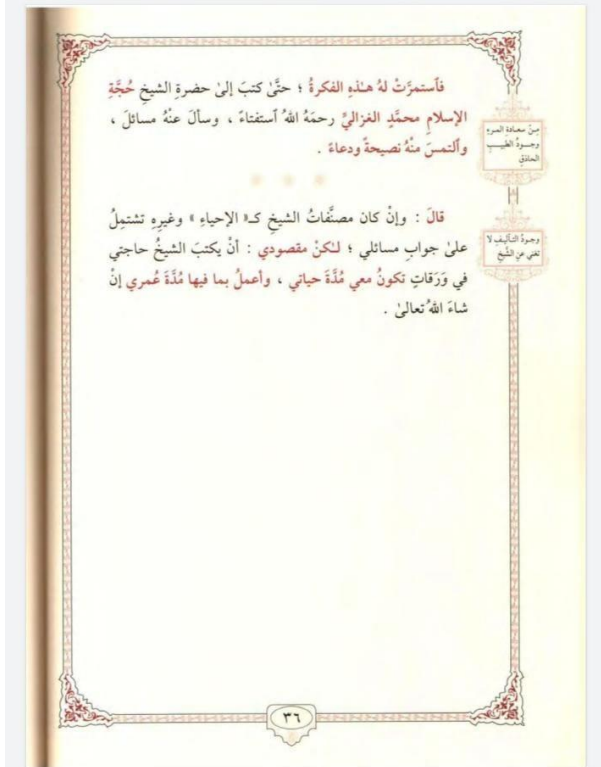 فَٱستمرَّتْ لهُ هـٰذهِ الفكرةُ ؛ حتَّىٰ كتبَ إلىٰ حضرةِ الشيخِ حُجَّةِ
الإسلامِ محمَّدٍ الغزاليِّ رحمَهُ اللهُ ٱستفتاءً ، وسألَ عنْهُ مسائلَ ،
وٱلتمسَ منْهُ نصيحةً ودعاءً .
مِنْ سعادةِ المرءِ
وجـودُ الطَّبيـبِ
الحاذقِ
قالَ : وإنْ كان مصنَّفاتُ الشيخِ كـ« الإحياءِ » وغيرِهِ تشتمِلُ
علىٰ جوابِ مسائلي ؛ لـٰكنْ مقصودي : أنْ يكتبَ الشيخُ حاجتي
في وَرَقاتٍ تكونُ معي مُدَّةَ حياتي ، وأعملُ بما فيها مُدَّةَ عُمري إنْ
شاءَ اللهُ تعالىٰ .
وجودُ التَّآليفِ لا
تغني عنِ الشَّيخِ
٣٦